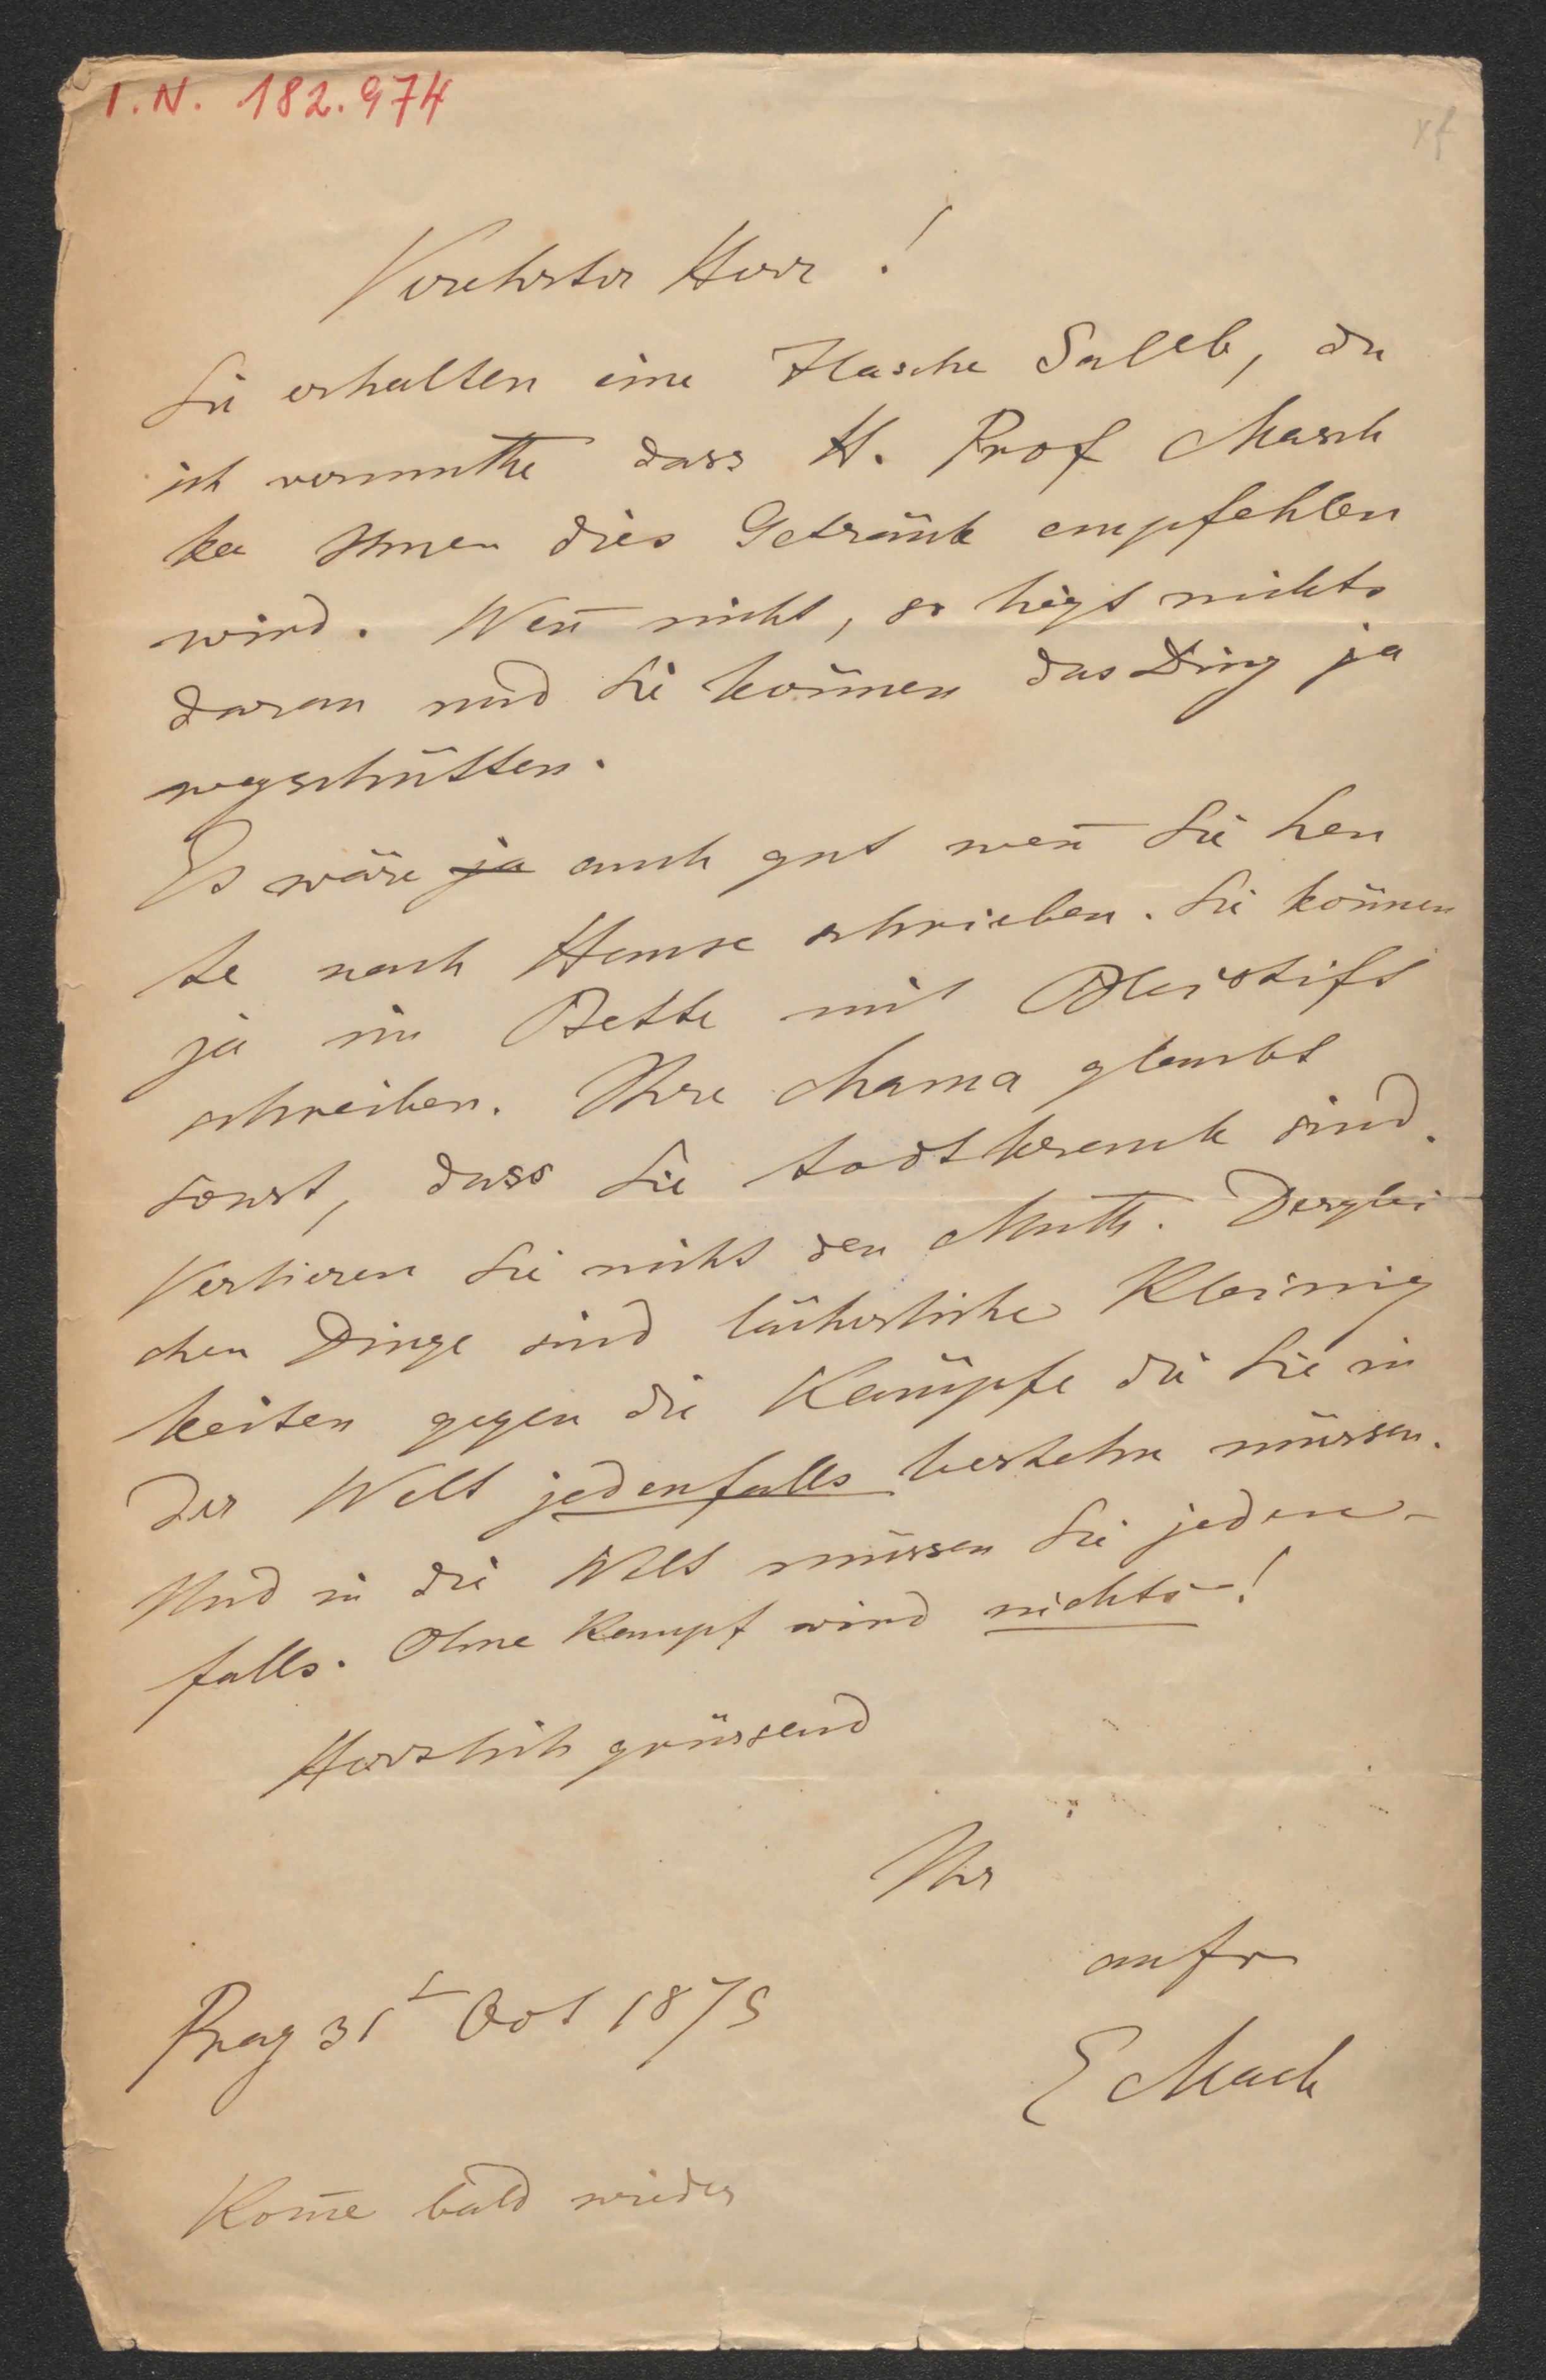 I.N. 182.974
xf
Verehrter Herr!
Sie erhalten eine Flasche Saleb, da
ich vermuthe dass H. Prof Masch
ka Ihnen dies Getränk empfehlen
wird. Wen̄ nicht, so liegt nichts
daran und Sie können das Ding ja
wegschütten.
Es wäre ja auch gut wen̄ Sie heu
te nach Hause schrieben. Sie können
ja im Bette mit Bleistift
schreiben. Ihre Mama glaubt
sonst, dass Sie todtkrank sind.
Verlieren Sie nicht den Muth. Derglei
chen Dinge sind lächerliche Kleinig
keiten gegen die Kämpfe die Sie in
der Welt jedenfalls bestehn müssen.
Und in die Welt müssen Sie jeden-
falls. Ohne Kampf wird nichts-!
Herzlich grüssend
Ihr
aufr
Prag 31t Oct 1875
E Mach
Kom̄e bald wieder